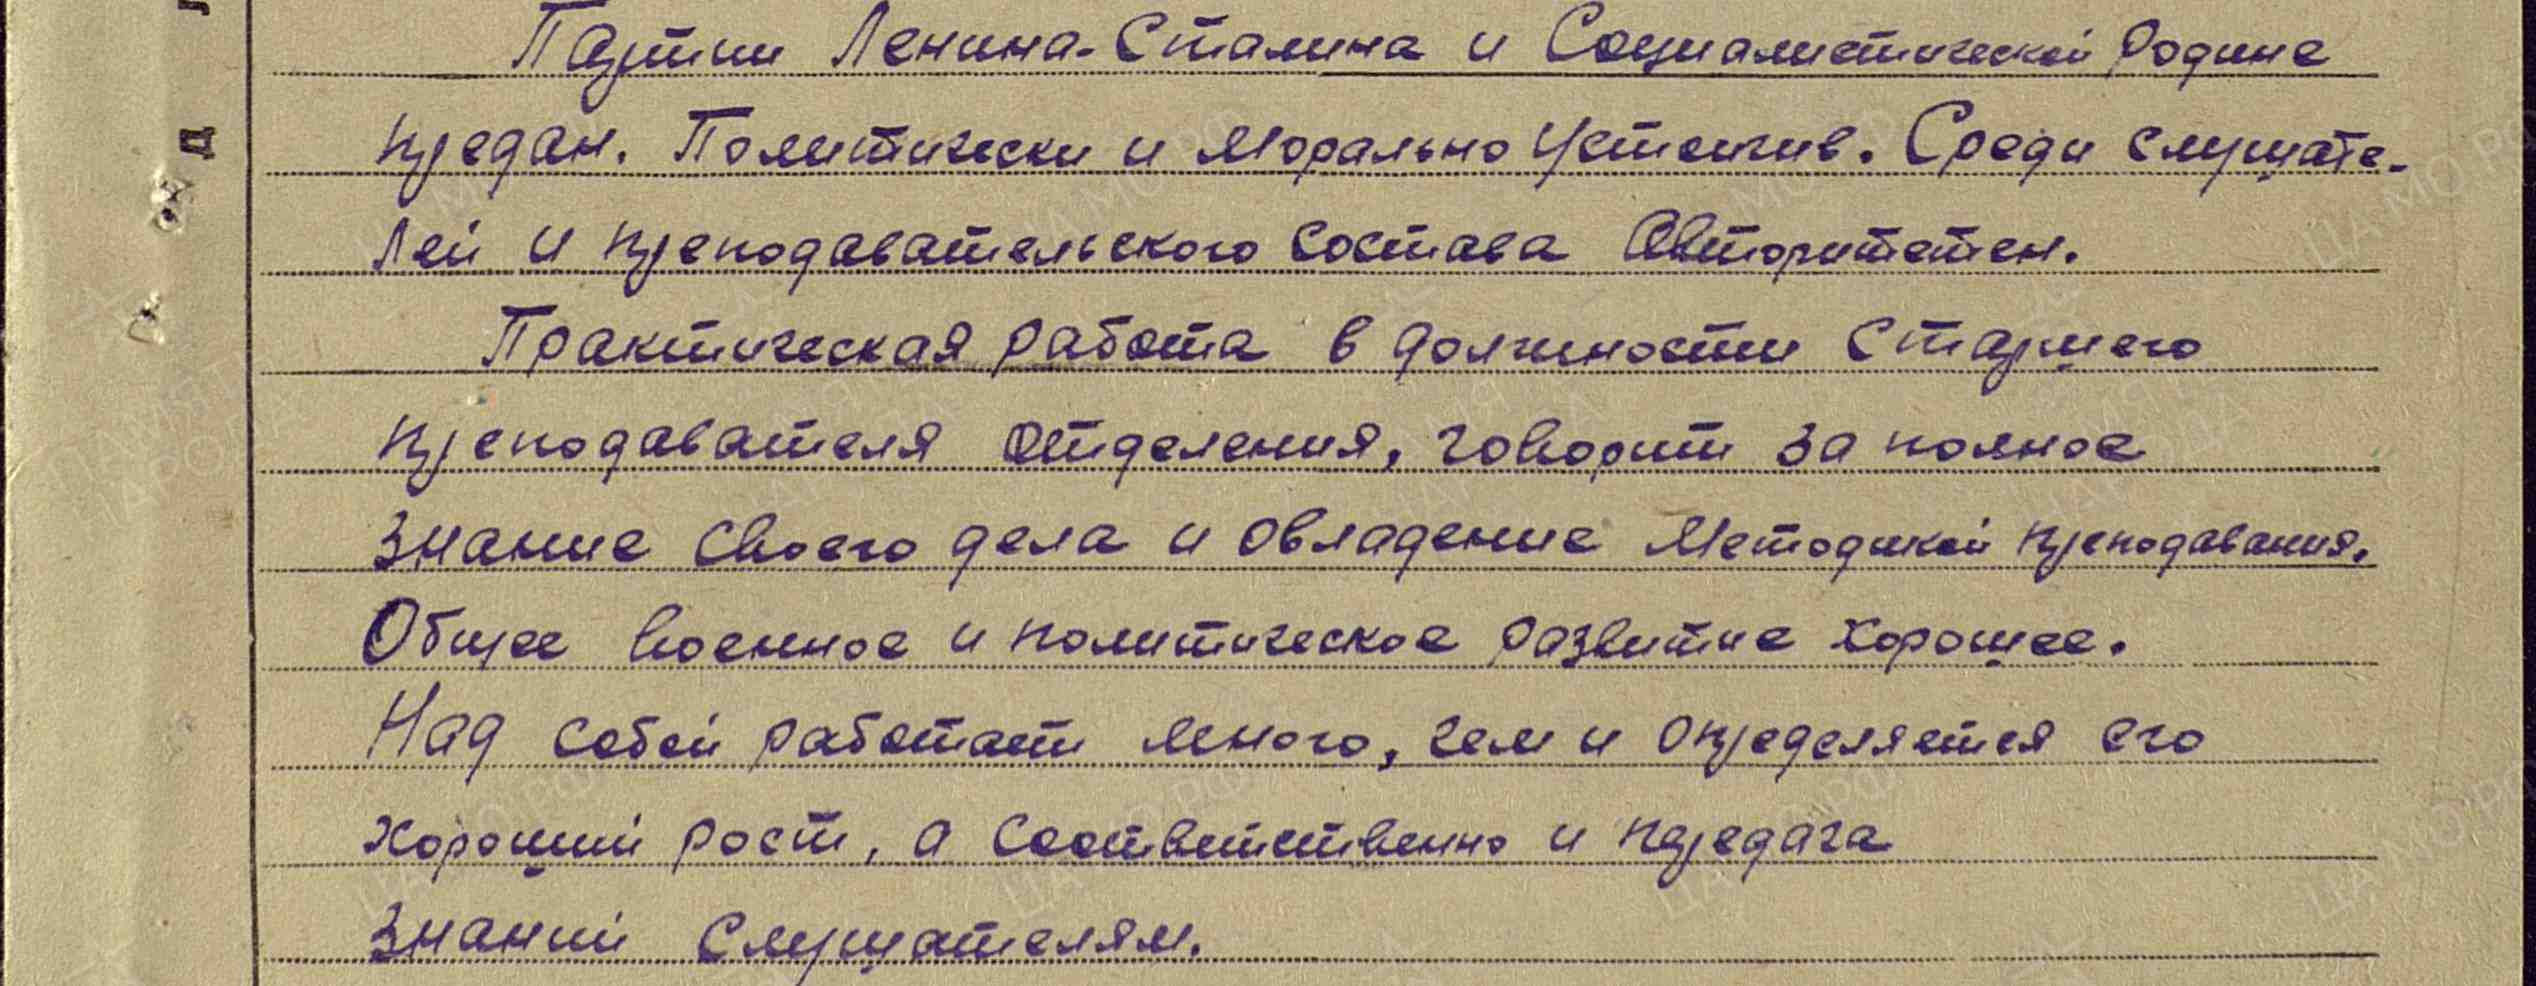 Партии Ленина-Сталина и Социалистической Родине
предан. Политически и Морально Устойчив. Среди слушате-
лей и преподавательского состава Авторитетен.
Практическая работа в должности Старшего
преподавателя отделения, говорит за полное
знание своего дела и овладение Методикой преподавания.
Общее военное и политическое развитие хорошее.
Над собой работает много, чем и определяется его
хороший рост, а соответственно и передача
знаний Слушателям.